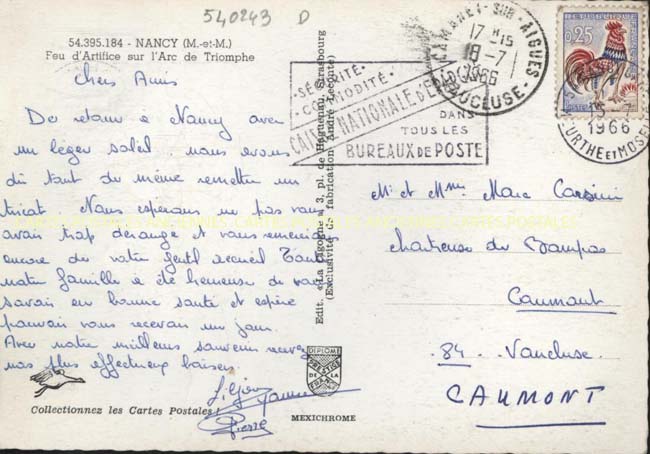 540243 D
54.395.184 - NANCY (M.-et-M.)
Feu d'Artifice sur l'Arc de Triomphe
Chers Amis
De retour à Nancy avec
un léger soleil. nous avons
dû tout de même remettre un
tricot. Nous espérons ne pas vous
avoir trop dérangé et vous remercions
encore de votre gentil accueil Toute
notre famille a été heureuse de vous
savoir en bonne santé et espère
pouvoir vous recevoir un jour.
Avec notre meilleurs souvenirs recevez
nos plus affectueux baisers.
Pierre
Collectionnez les Cartes Postales !
Edit. « La Cigogne » 3, pl. de Haguenau, Strasbourg
(Exclusivité de fabrication André Leconte)
DIPLOME
PRESTIGE
DE LA
FRANCE
MEXICHROME
SÉCURITÉ
COMMODITÉ
CAISSE NATIONALE D'ÉPARGNE
DANS
TOUS LES
BUREAUX DE POSTE
SUR-AIGUES
17 H 15
18-7
1966
VAUCLUSE
0,25
1966
MEURTHE ET MOSELLE
Mr et Mme Marc
chartreuse de Bompas
Caumont
84. Vaucluse.
CAUMONT